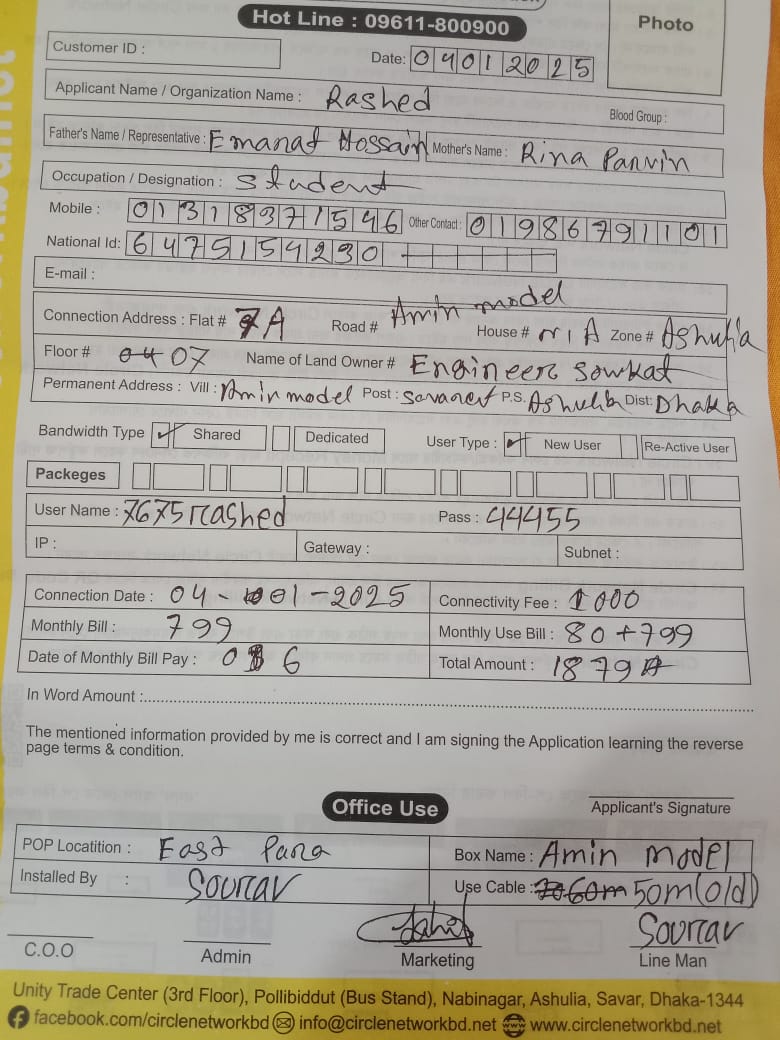 Hot Line : 09611-800900
Photo
Customer ID :
Date: 04012025
Applicant Name / Organization Name : Rashed
Blood Group :
Father's Name / Representative : Emanat Hossain Mother's Name : Rina Parvin
Occupation / Designation : Student
Mobile : 01318371546 Other Contact : 01986791101
National Id: 6475154230
E-mail :
Connection Address : Flat # 7A Road # Amin model House # n/A Zone # Ashulia
Floor # 07 Name of Land Owner # Engineer Sowkat
Permanent Address : Vill : Amin model Post : P.S. Ashulia Dist: Dhaka
Bandwidth Type ✓ Shared Dedicated User Type : ✓ New User Re-Active User
Packeges
User Name : 7675rashed Pass : 44455
IP : Gateway : Subnet :
Connection Date : 04-01-2025 Connectivity Fee : 1000
Monthly Bill : 799 Monthly Use Bill : 80+799
Date of Monthly Bill Pay : 06 Total Amount : 1879
In Word Amount :
The mentioned information provided by me is correct and I am signing the Application learning the reverse
page terms & condition.
Office Use
Applicant's Signature
POP Locatition : East Para Box Name : Amin Model
Installed By : Sourav Use Cable : 50m(old)
Sourav
C.O.O Admin Marketing Line Man
Unity Trade Center (3rd Floor), Pollibiddut (Bus Stand), Nabinagar, Ashulia, Savar, Dhaka-1344
facebook.com/circlenetworkbd info@circlenetworkbd.net www.circlenetworkbd.net